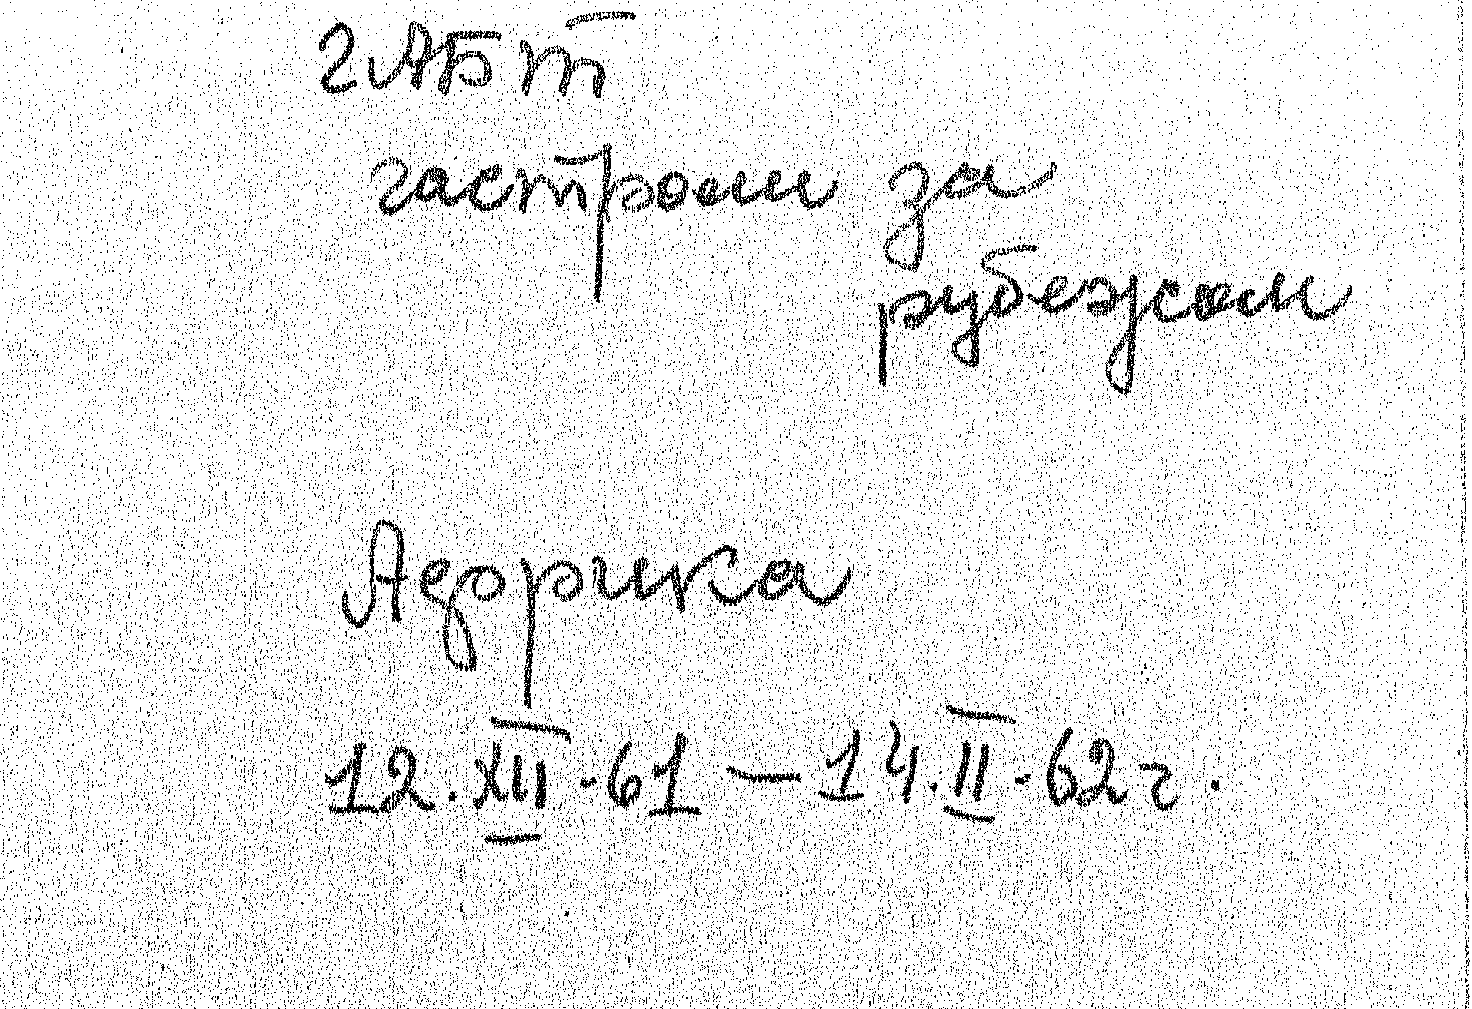 ГАБТ
гастроли за
рубежом
Африка
12.XII.61 — 14.II.62 г.